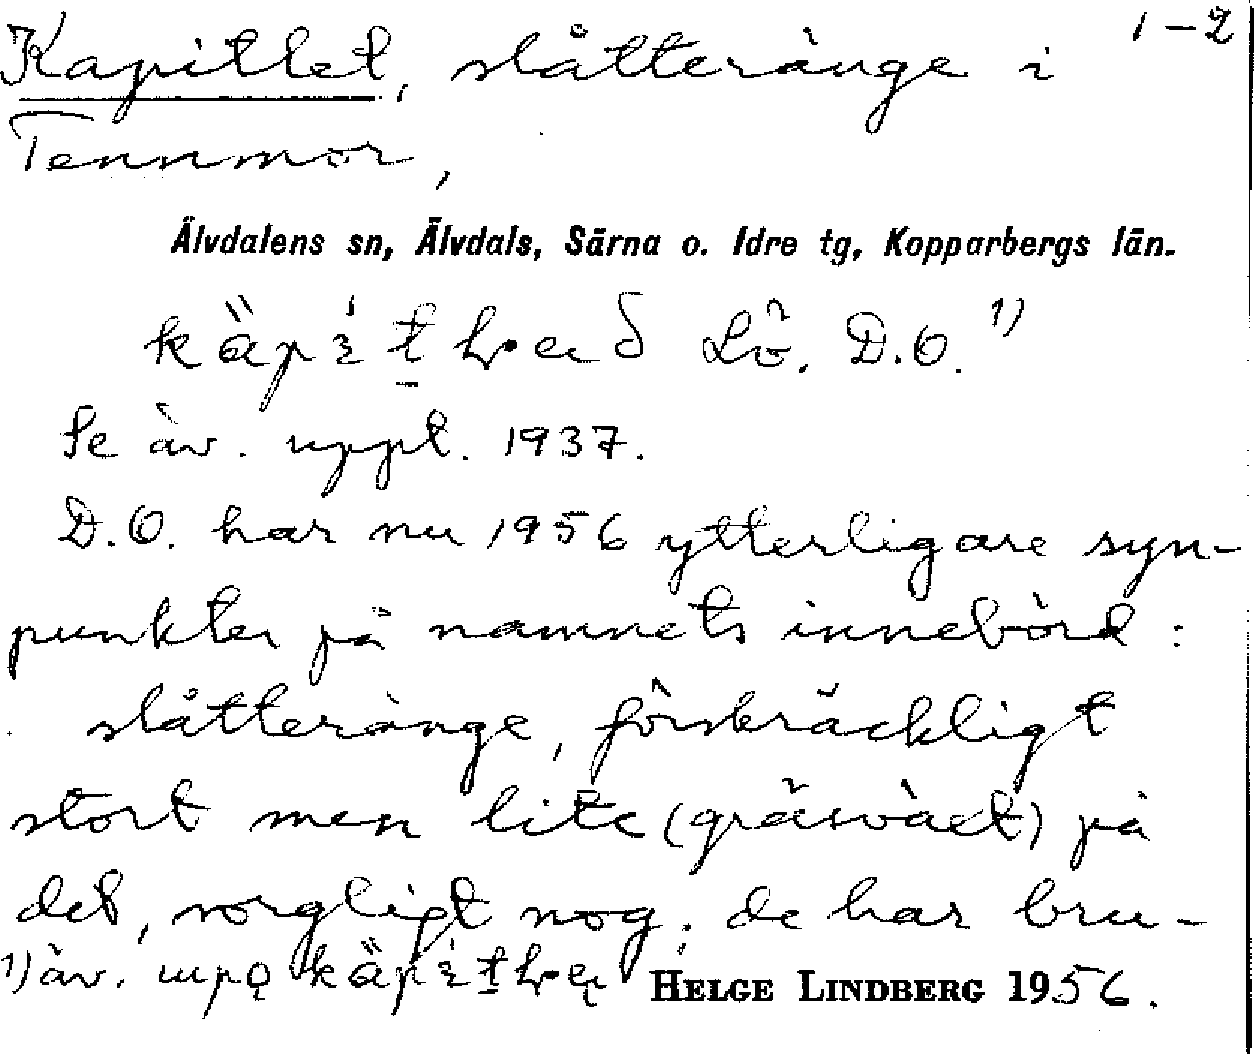 1-2
Kapitlet, slåtteränge i
Tennmor,
Älvdalens sn, Älvdals, Särna o. Idre tg, Kopparbergs län.
D.O. 1)
Se äv. uppt. 1937.
D.O. har nu 1956 ytterligare syn-
punkter på namnets innebörd:
slåtteränge, förskräckligt
stort men lite (gräsväxt) på
det, sorgligt nog; de har bru-
1) äv. upo
HELGE LINDBERG 1956.